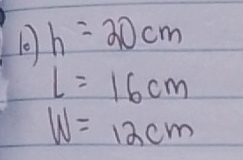 10) h = 20cm
L = 16cm
W = 12cm